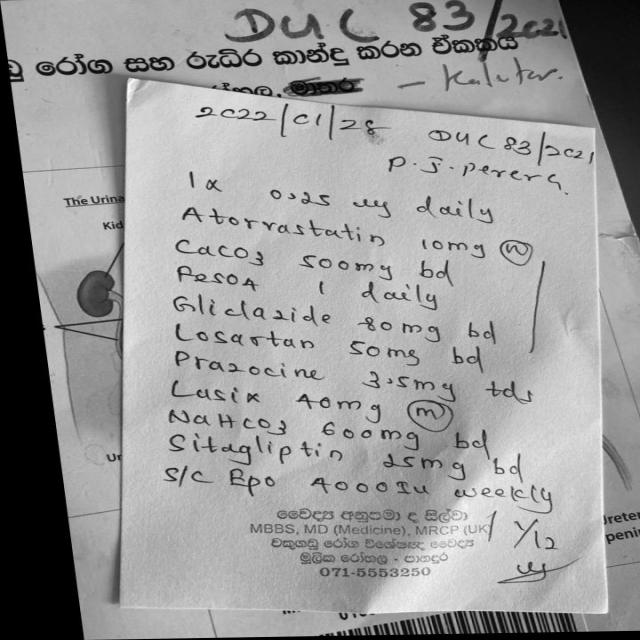 DUC 83/2021
ඩු රෝග සහ රුධිර කාන්දු කරන ඒකකය
මාතර - Kalutar.
2022/01/28
DUC 83/2021
P. J. perera.
1α 0.25 ug daily
Atorvastatin 10mg (N)
CaCO3 500mg bd
PESOA 1 daily
Gliclazide 80mg bd
Losartan 50mg bd
Prazocine 3.5mg tds
Lasix 40mg (m)
NaHCO3 600mg bd
Sitagliptin 25mg bd
S/C Epo 4000IU weekly
1/12
වෛද්‍ය අනුපමා ද සිල්වා
MBBS, MD (Medicine), MRCP (UK)
වකුගඩු රෝග විශේෂඥ වෛද්‍ය
මූලික රෝහල - පානදුර
071-5553250
The Urina
Kid
Ur
Ureter
penin